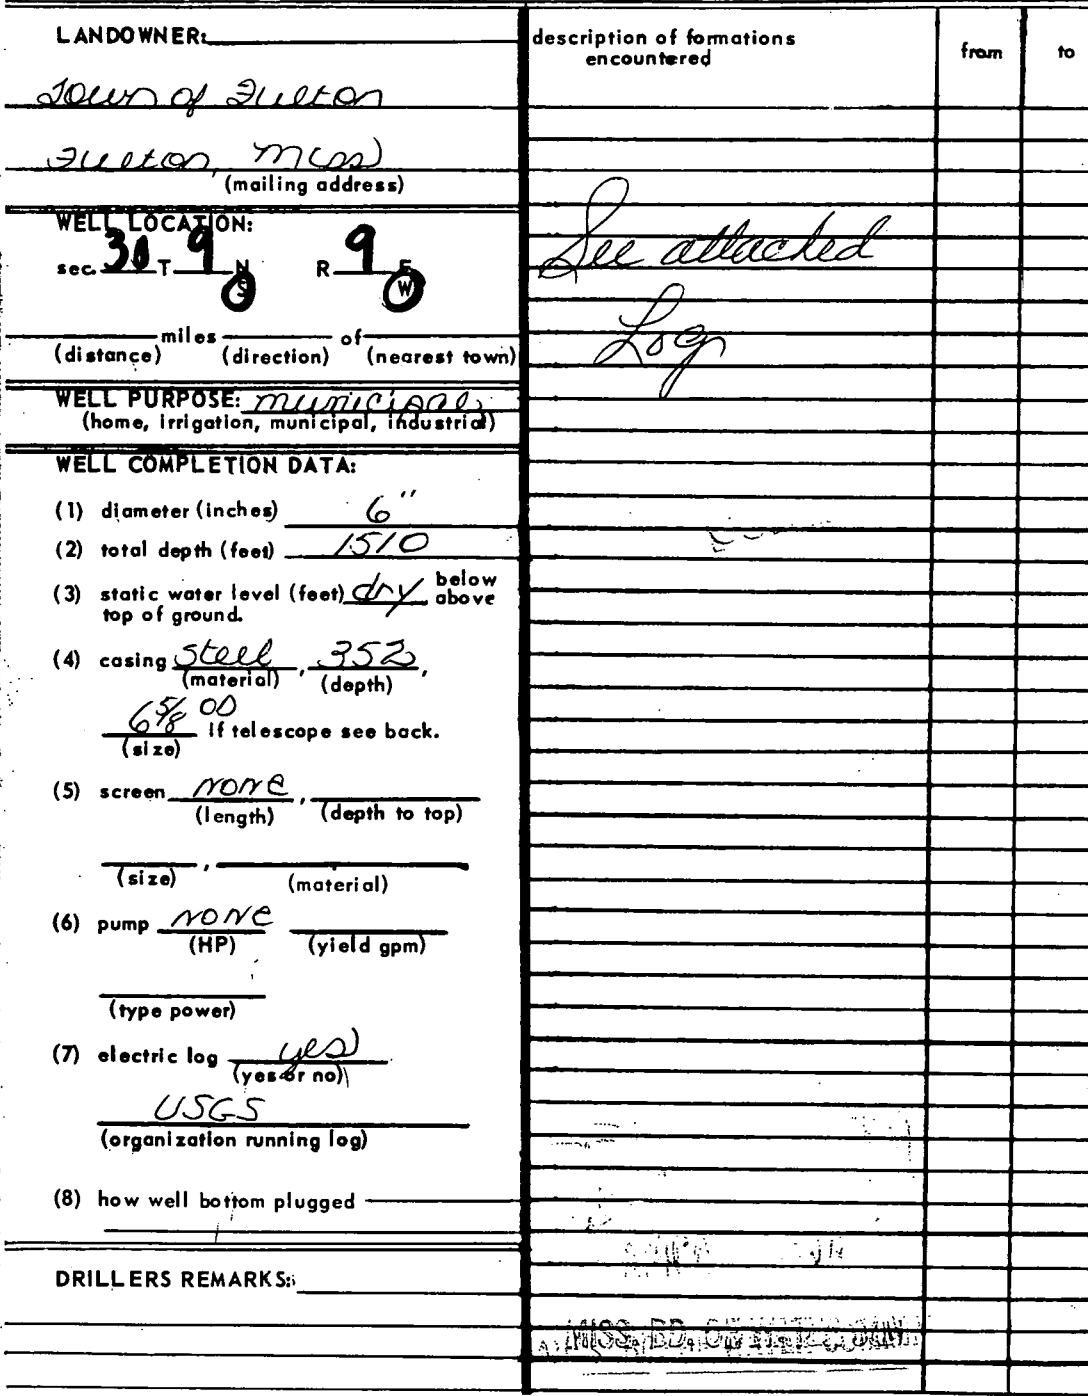 LANDOWNER:
Town of Fulton
Fulton, Miss
(mailing address)
WELL LOCATION:
sec. 30 T 9 N S R 9 E W
miles of
(distance) (direction) (nearest town)
WELL PURPOSE: municipal
(home, irrigation, municipal, industrial)
WELL COMPLETION DATA:
(1) diameter (inches) 6"
(2) total depth (feet) 1510
(3) static water level (feet) dry below above
top of ground.
(4) casing steel, 352,
(material) (depth)
6 5/8 OD if telescope see back.
(size)
(5) screen none,
(length) (depth to top)
,
(size) (material)
(6) pump NONE
(HP) (yield gpm)
(type power)
(7) electric log yes
(yes or no)
USGS
(organization running log)
(8) how well bottom plugged
DRILLERS REMARKS:
description of formations
encountered
from to
See attached
Log
MISS. BD. OF WATER COMM.